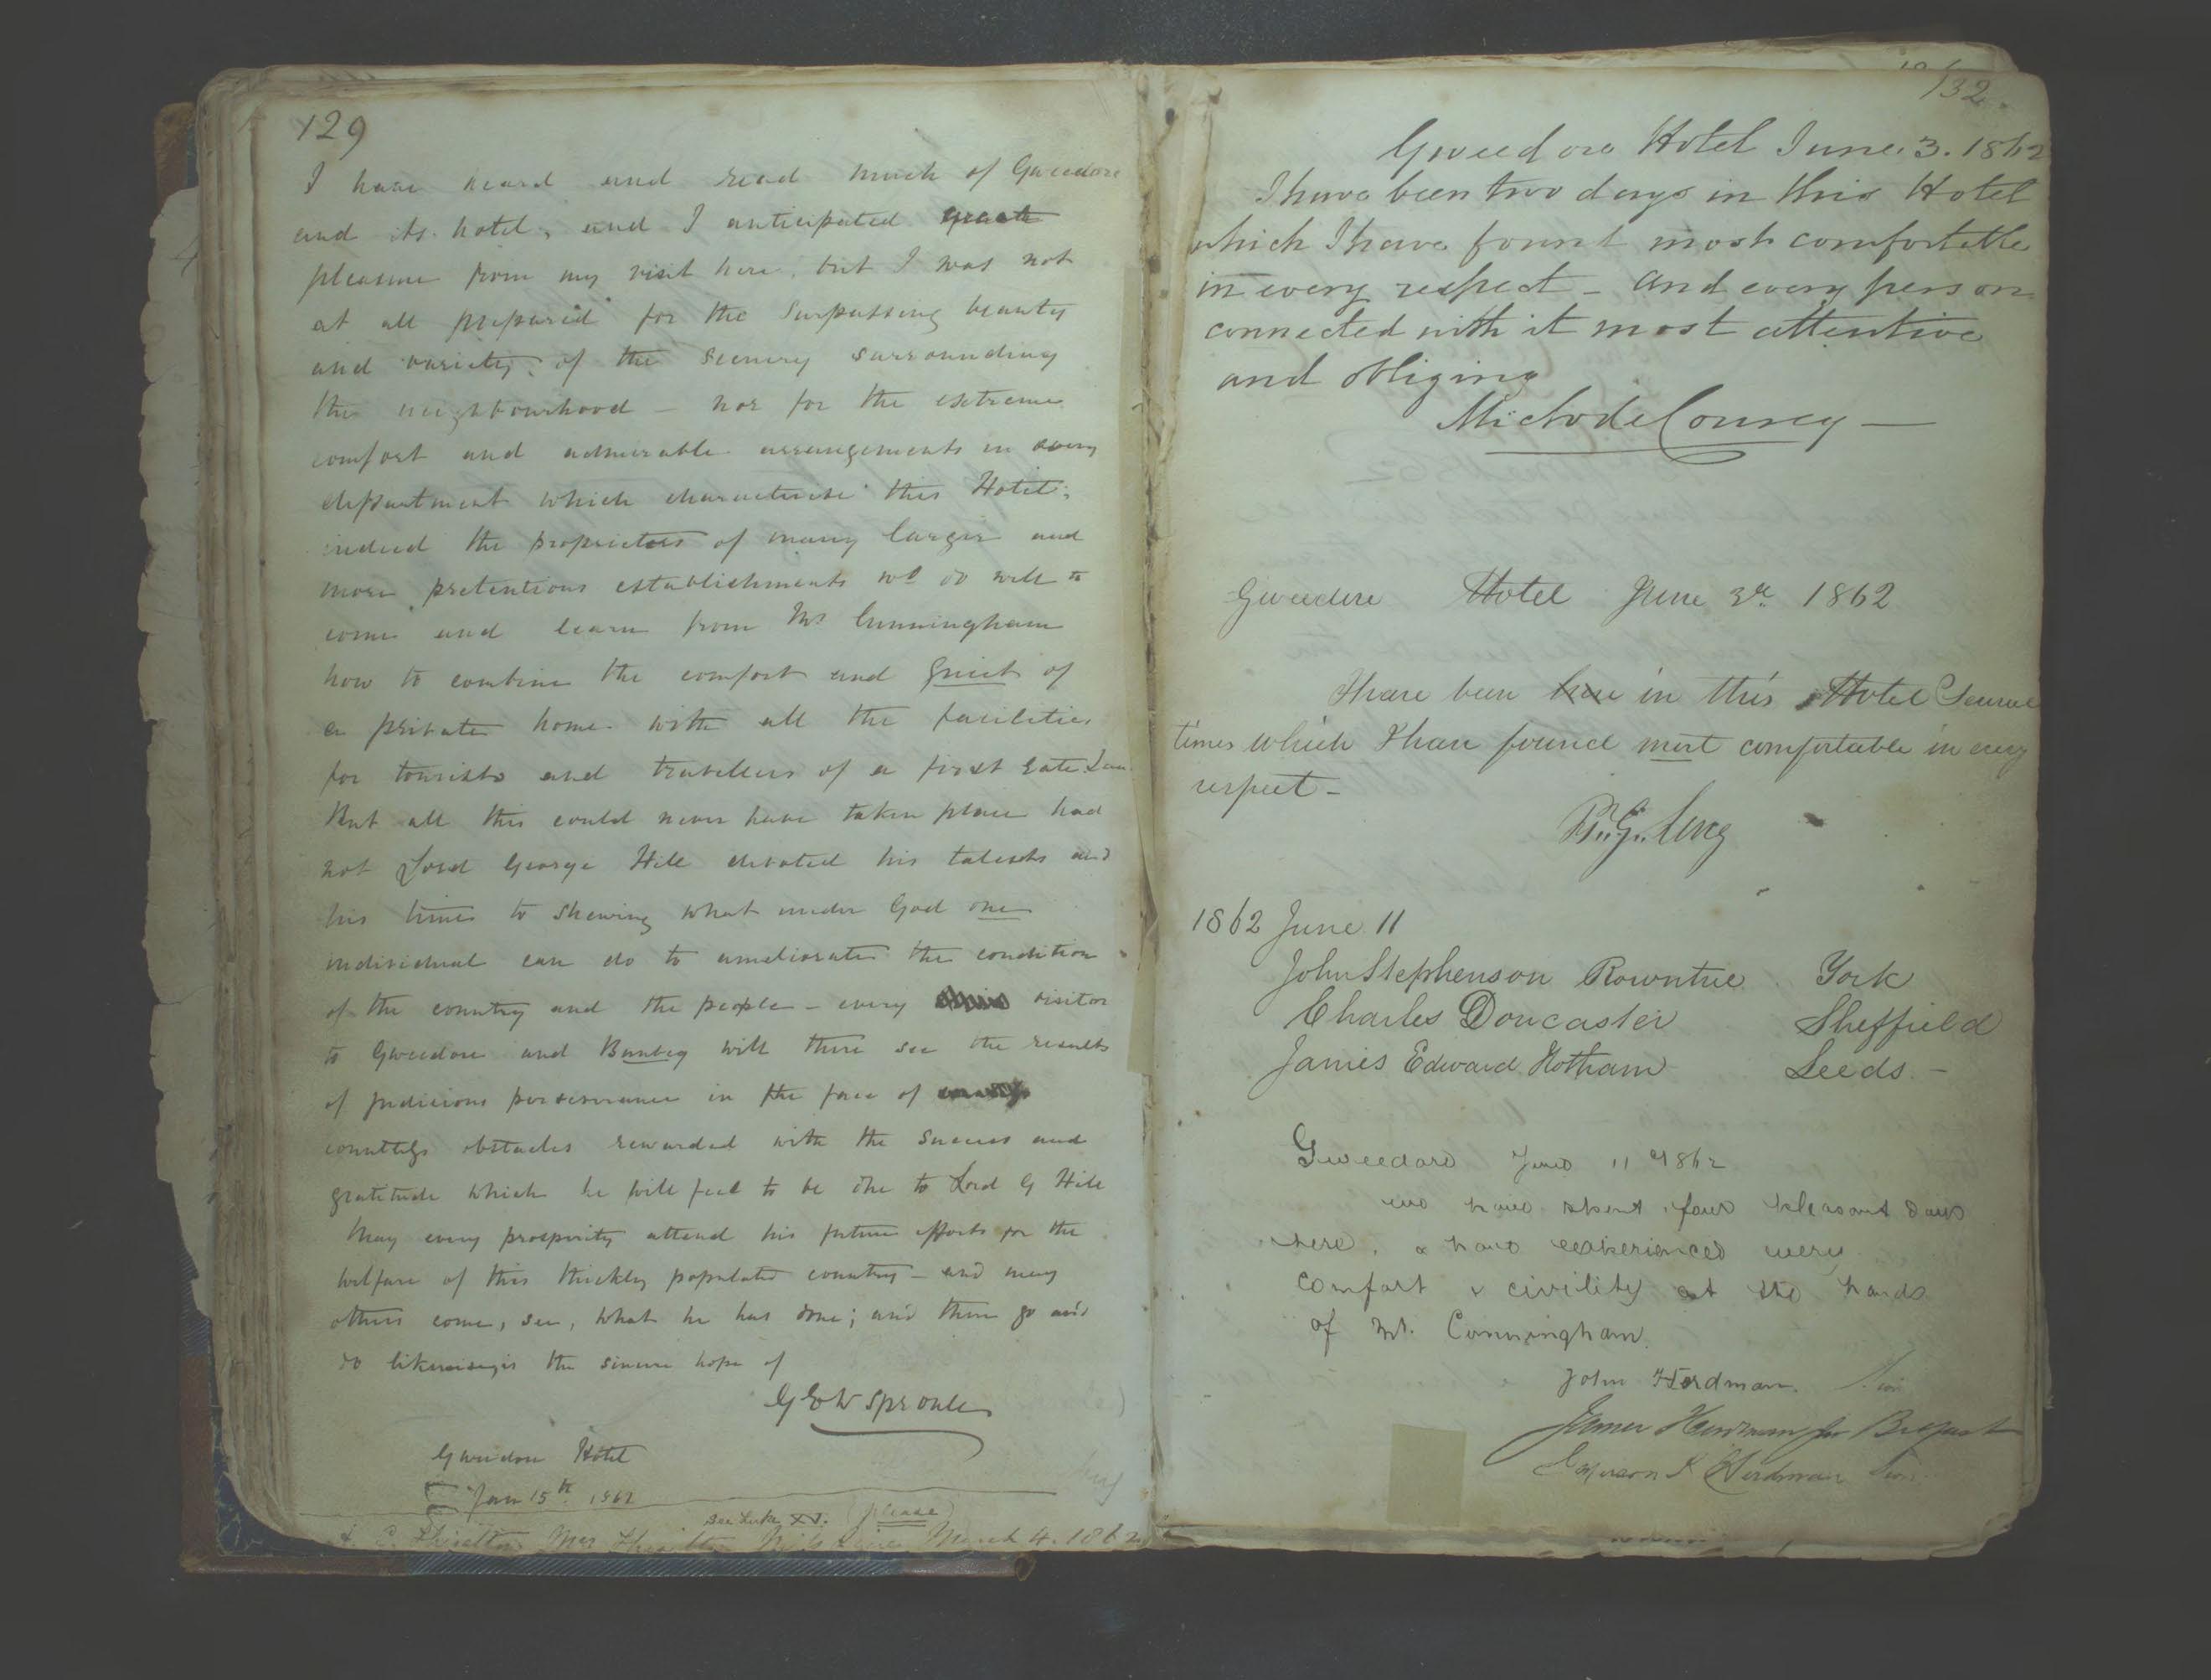 129
I have heard and read much of Gweedore
and its hotel, and I anticipated great
pleasure from my visit here, but I was not
at all prepared for the surpassing beauty
and variety of the scenery surrounding
the neighbourhood – nor for the extreme
comfort and admirable arrangements in every
department which characterise this Hotel;
indeed the proprietors of many larger and
more pretentious establishments wd do well to
come and learn from Mr Cunningham
how to combine the comfort and quiet of
a private home with all the facilities
for tourists and travellers of a first rate Inn.
But all this could never have taken place had
not Lord George Hill devoted his talents and
his times to shewing what under God one
individual can do to ameliorate the condition
of the country and the people – every visitor
to Gweedore and Bunbeg will there see the results
of judicious perseverance in the face of
countless obstacles rewarded with the success and
gratitude which he will feel to be due to Lord G Hill
May every prosperity attend his future efforts for the
welfare of this thickly populated country – and may
others come, see, what he has done; and then go and
do likewise, is the sincere hope of
G E W Sproule
Gweedore Hotel
15th 1862
See Luke XV. (please)
Mrs March 4. 1862
132
Gweedore Hotel June 3. 1862
I have been two days in this Hotel
which I have found most comfortable
in every respect – and every person
connected with it most attentive
and obliging
Michl de Courcy —
Gweedore Hotel June 3rd 1862
I have been here in this Hotel Several
times which I have found most comfortable in every
respect –
1862 June 11
John Stephenson Rowntree York
Charles Doncaster Sheffield
James Edward Hotham Leeds. –
Gweedore June 11 1862
we have spent four pleasant days
here, & have experienced every
comfort & civility at the hands
of Mr. Cunningham.
John Herdman.
James Herdman Jr Belfast
Emerson Herdman